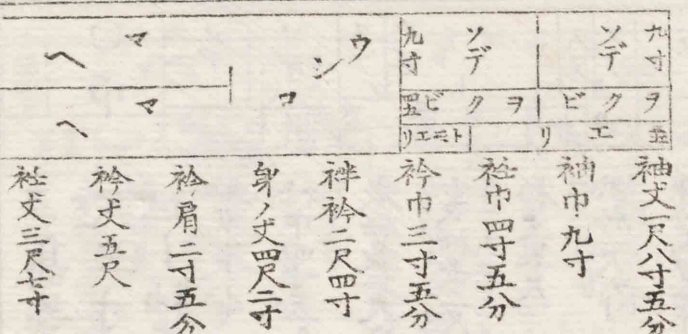 九寸
ソデ
ソデ
九寸
ヲクビ
ヲクビ
四五
並エリ
トモエリ
ウシロ
マヘ
マヘ
袖丈一尺八寸五分
袖巾九寸
衽巾四寸五分
衿巾三寸五分
袢衿二尺四寸
身ノ丈四尺二寸
衿肩二寸五分
衿丈五尺
衽丈三尺七寸